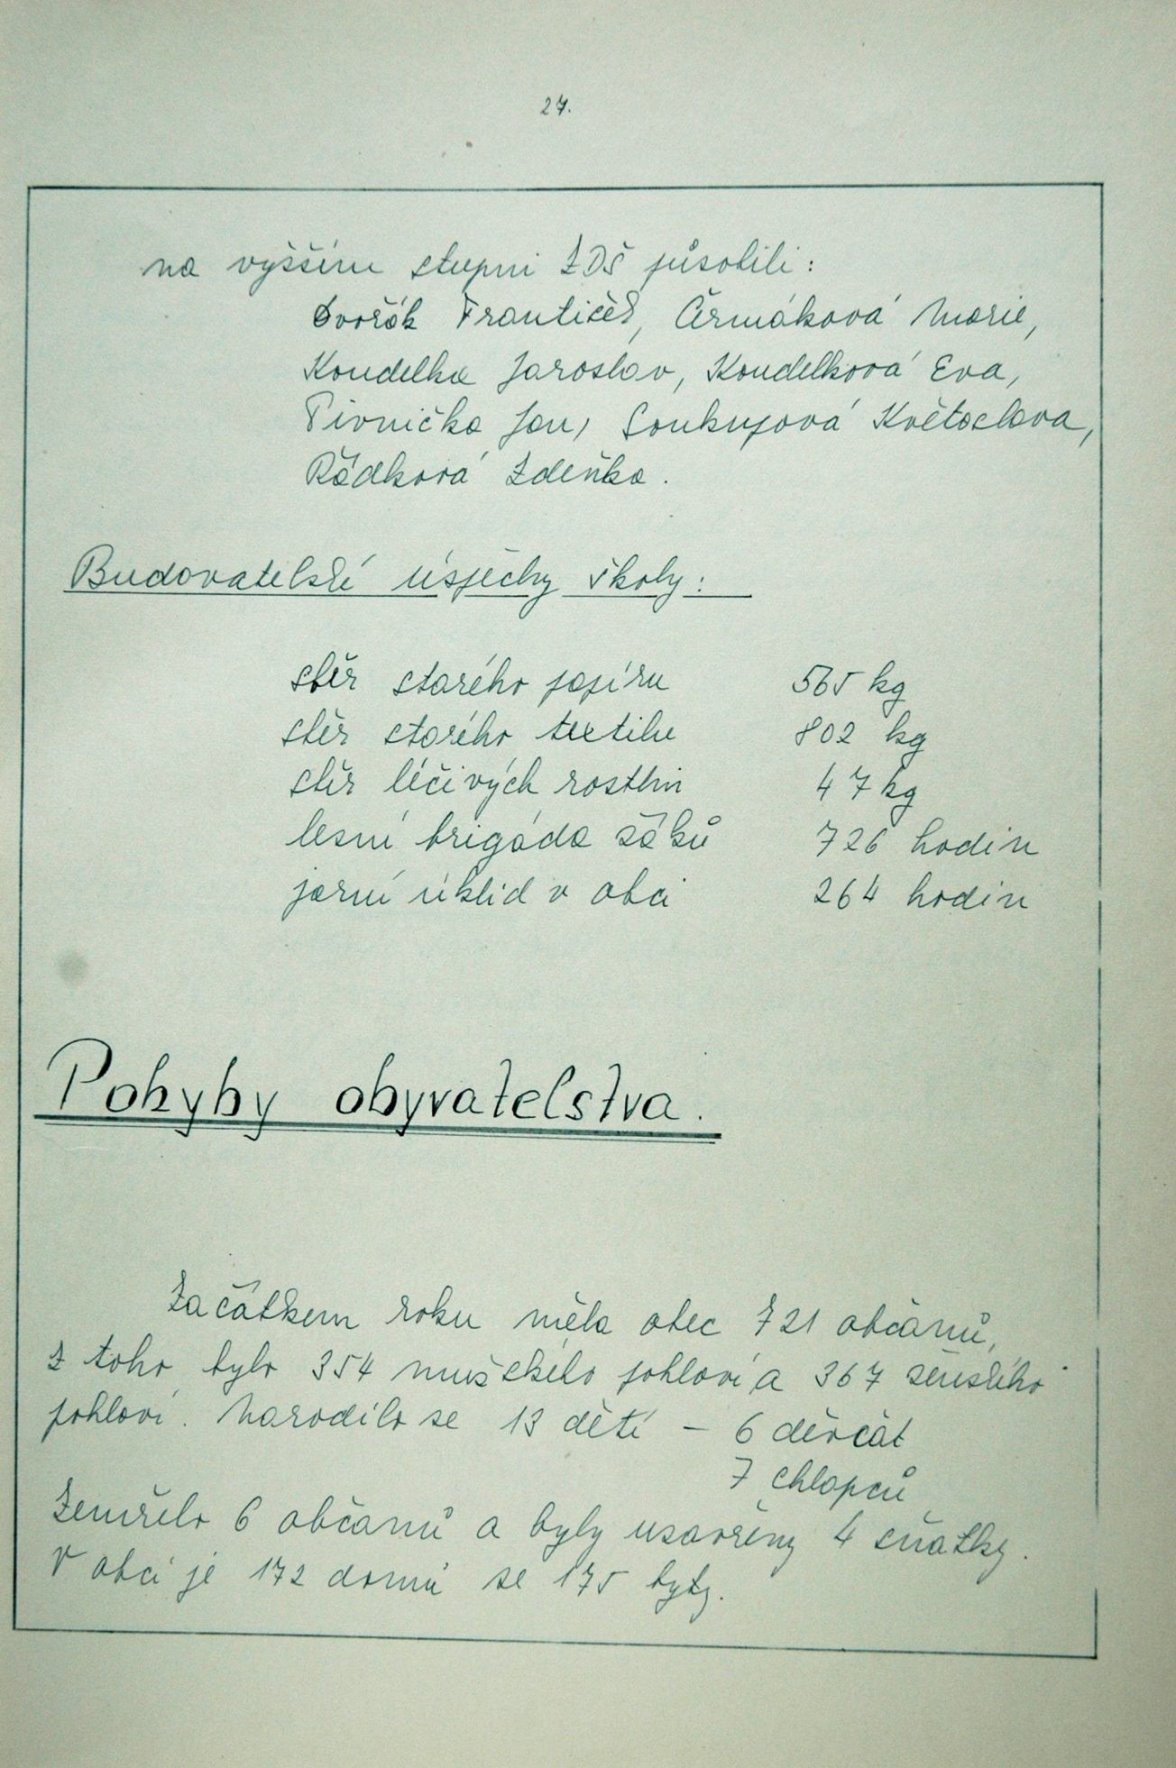 27.
na vyšším stupni ZDŠ působili:
Dvořák František, Čermáková Marie,
Koudelka Jaroslav, Koudelková Eva,
Pivnička Jan, Soukupová Květoslava,
Řádková Zdeňka.
Budovatelské úspěchy školy:
sběr starého papíru 565 kg
sběr starého textilu 802 kg
sběr léčivých rostlin 47 kg
lesní brigáda žáků 726 hodin
jarní úklid v obci 264 hodin
Pohyby obyvatelstva.
Začátkem roku měla obec 721 občanů,
z toho bylo 354 mužského pohlaví a 367 ženského
pohlaví. Narodilo se 13 dětí – 6 děvčat
7 chlapců
Zemřelo 6 občanů a byly uzavřeny 4 sňatky.
V obci je 172 domů se 175 byty.